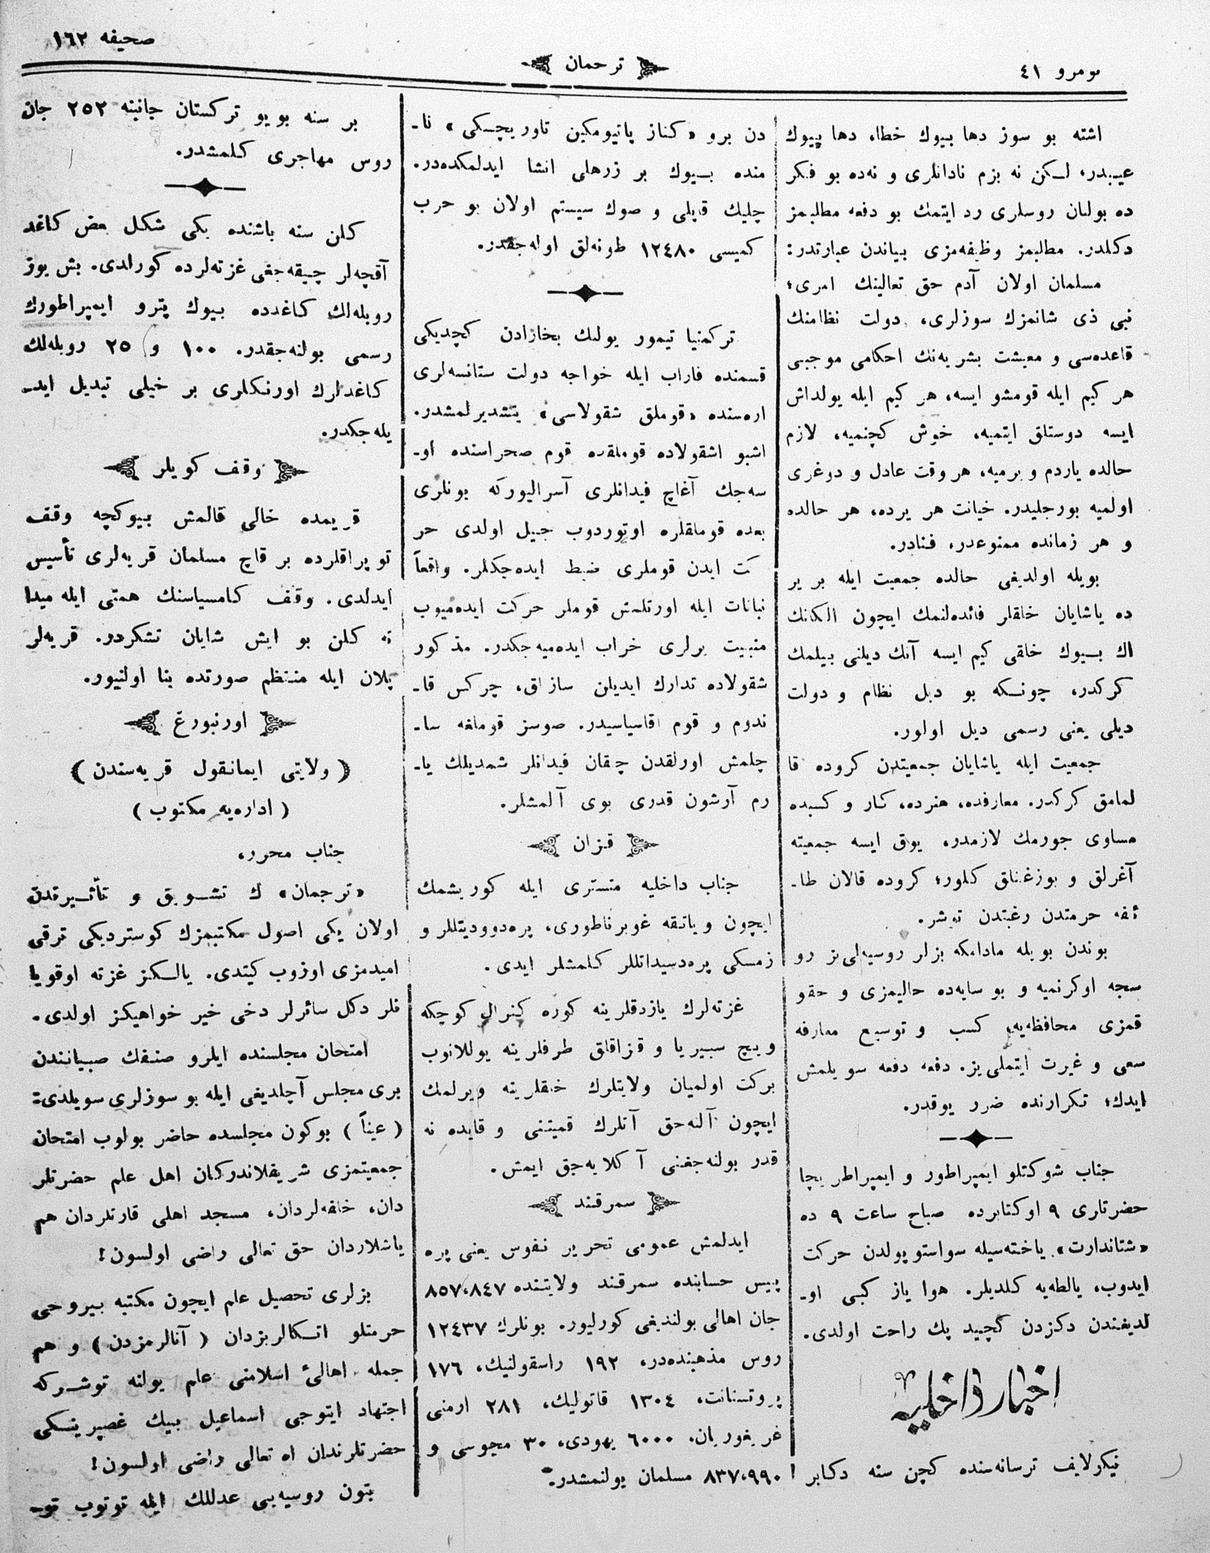 نومرو ٤١
ترجمان
صحيفه ١٦٢
اشته بو سوز دها بيوك خطاء، دها بيوك
عيبدر، لكن نه بزم نادانلرى و نه‌ده بو فكر
ده بولنان روسلرى رد ايتمك بو دفعه مطلبمز
دكلدر. مطلبمز وظيفه‌مزى بياندن عبارتدر:
مسلمان اولان آدم حق تعالينك امرى؛
نبى ذى شانمزك سوزلرى، دولت نظامنك
قاعده‌سى و معيشت بشريه‌نك احكامى موجبى
هر كيم ايله قومشو ايسه، هر كيم ايله يولداش
ايسه دوستلق ايتميه، خوش كچنميه، لازم
حالده ياردم و يرميه، هر وقت عادل و دوغرى
اولميه بورجليدر. خيانت هر يرده، هر حالده
و هر زمانده ممنوعدر، فنادر.
بويله اولديغى حالده جمعيت ايله بر ير
ده ياشايان خلقلر فائده‌لنمك ايچون الكه‌نك
اك بيوك خلقى كيم ايسه آنك ديلنى بيلمك
كركدر، چونكه بو ديل نظام و دولت
ديلى يعنى رسمى ديل اولور.
جمعيت ايله ياشايان جمعيتدن كروده قا
لمامق كركدر. معارفده، هنرده، كار و كسبده
مساوى جورمك لازمدر. يوق ايسه جمعيته
آغرلق و بوزغنلق كلور؛ كروده قالان طا-
ئفه حرمتدن رغبتدن توشر.
بوندن بويله مادامكه بزلر روسيه‌لى‌يز رو
سجه اوكرنميه و بو سايه‌ده حاليمزى و حقو
قمزى محافظه‌يه، كسب و توسيع معارفه
سعى و غيرت ايتملى‌يز. دفعه دفعه سويلمش
ايدك؛ تكرارنده ضرر يوقدر.
جناب شوكتلو ايمپراطور و ايمپراطريچا
حضرتلرى ٩ اوكتابرده صباح ساعت ٩ ده
«شتاندارت» ياخته‌سيله سواستوپولدن حركت
ايدوب، يالطه‌يه كلديلر. هوا ياز كبى او-
لديغندن دكزدن كچيد پك راحت اولدى.
اخبار داخليه
نيكولايف ترسانه‌سنده كچن سنه دكابر
دن برو «كناز پاتيومكين تاوريچسكى» نا-
منده بيوك بر زرهلى انشا ايدلمكده‌در.
چليك قپلى و صوك سيستم اولان بو حرب
كميسى ١٢٤٨٠ طونه‌لق اوله‌جقدر.
تركمنيا تيمور يولنك بخارادن كچديكى
قسمنده فاراب ايله خواجه دولت ستانسه‌لرى
اره‌سنده «قوملق شقولاسى» يتشديرلمشدر.
اشبو اشقولاده قوملقده قوم صحراسنده او-
سه‌جك آغاچ فيدانلرى آسراليوركه بونلرى
بعده قوملقلره اوتوردوب جبيل اولدى حر
كت ايدن قوملرى ضبط ايده‌جكلر. واقعاً
نباتات ايله اورتلمش قوملر حركت ايده‌ميوب
منبيت يرلرى خراب ايده‌ميه‌جكدر. مذكور
شقولاده تدارك ايديلن سازاق، چركس قا-
ندوم و قوم اقاسياسيدر. صوسز قوملغه سا-
چلمش اورلقدن چقان فيدانلر شمديلك يا-
رم آرشون قدرى بوى آلمشلر.
قزان
جناب داخليه منسترى ايله كوريشمك
ايچون وياتقه غوبرناطورى، پره‌دووديتللر و
زمسكى پره‌دسيداتللر كلمشلر ايدى.
غزته‌لرك يازدقلرينه كوره كنرال كوچكه
ويچ سبيريا و قزاقلق طرفلرينه يوللانوب
بركت اولميان ولايتلرك خلقلرينه ويرلمك
ايچون آله‌جق آتلرك قميتنى و قايده نه
قدر بولنه‌جغنى آكلايه‌جق ايمش.
سمرقند
ايدلمش عمومى تحرير نفوس يعنى پره
پيس حسابنده سمرقند ولايتنده ٨٥٧،٨٤٧
جان اهالى بولنديغى كورليور. بونلرك ١٢٤٣٧
روس مذهبنده‌در، ١٩٢ راسقولنيك، ١٧٦
پروتستانت، ١٣٠٤ قاتوليك، ٢٨١ ارمنى
غريغوريان، ٦٠٠٠ يهودى، ٣٠ مجوسى و
٨٣٧،٩٩٠ مسلمان يولنمشدر.
بر سنه بويو تركستان جانبنه ٢٥٢ جان
روس مهاجرى كلمشدر.
كلن سنه باشنده يكى شكل بعض كاغد
آقچه‌لر چيقه‌جغى غزته‌لرده كورلدى. بش يوز
روبله‌لك كاغدده بيوك پترو ايمپراطورك
رسمى بولنه‌جقدر. ١٠٠ و ٢٥ روبله‌لك
كاغدلرك اورنكلرى بر خيلى تبديل ايد-
يله‌جكدر.
وقف كويلر
قريمده خالى قالمش بيوكچه وقف
توپراقلرده بر قاچ مسلمان قريه‌لرى تأسيس
ايدلدى. وقف كاميسياسنك همتى ايله ميدا
نه كلن بو ايش شايان تشكردر. قريه‌لر
پلان ايله منتظم صورتده بنا اولنيور.
اورنبورغ
(ولايتى ايمانقول قريه‌سندن)
(اداره‌يه مكتوب)
جناب محرر،
«ترجمان» ك تشويق و تأثيرندن
اولان يكى اصول مكتبمزك كوسترديكى ترقى
اميدمزى اوزوب كيتدى. يالكز غزته اوقويا
نلر دكل سائرلر دخى خير خواهيكز اولدى.
امتحان مجلسنده ايلرو صنفك صبيانندن
برى مجلس آچلديغى ايله بو سوزلرى سويلدى:
(عيناً) بوكون مجلسده حاضر بولوب امتحان
جمعيتمزى شريفلاندركان اهل علم حضرتلر
دان، خلفه‌لردان، مسجد اهلى قارتلردان هم
ياشلاردان حق تعالى راضى اولسون!
بزلرى تحصيل علم ايچون مكتبه بيروحى
حرمتلو اتكالربزدان (آنالرمزدن) و هم
جمله اهالئ اسلامنى علم يولنه توشركه
اجتهاد ايتوجى اسماعيل بيك غصپرينسكى
حضرتلرندان الله تعالى راضى اولسون!
بتون روسيه‌يى عدللك ايله توتوب تو-